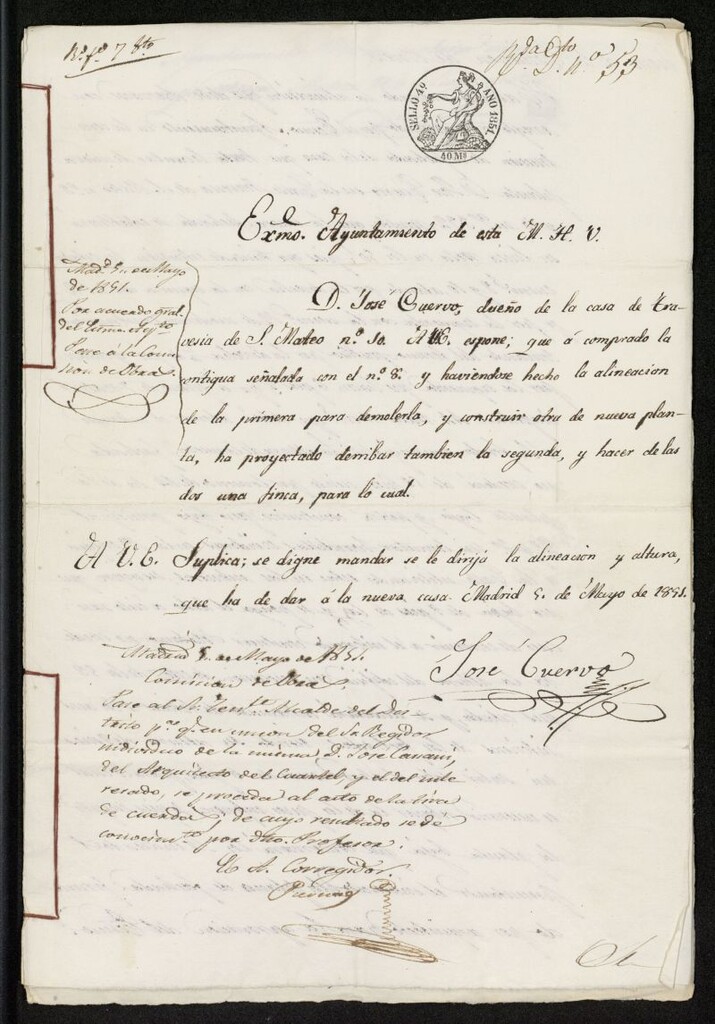 Rº fº 7 Sto
Rda Dto
D. nº 53
SELLO 4º AÑO 1851.
40 Ms
Exmo. Ayuntamiento de esta M. H. V.
Madd 5. de Mayo
de 1851.
Por acuerdo gral.
del Exmo. Aytto
Pase á la Comi
sion de Obras.
D. José Cuervo, dueño de la casa de tra-
vesia de S. Mateo nº. 10. espone; que á comprado la
contigua señalada con el nº. 8. y haviendose hecho la alineacion
de la primera para demolerla, y construir otra de nueva plan-
ta, ha proyectado derribar tambien la segunda, y hacer de las
dos una finca, para lo cual.
A V. E. Suplica; se digne mandar se le dirija la alineacion y altura,
que ha de dar á la nueva casa. Madrid 5. de Mayo de 1851.
José Cuervo
Madrid 5. de Mayo de 1851.
Comision de Obras.
Pase al Sr. Tente. Alcalde del Dis-
trito pa. q. en union del Sr. Regidor
individuo de la misma, D. José
del Arquitecto del Cuartel, y el del inte
resado, se proceda al acto de la tira
de cuerdas, de cuyo resultado se dé
conocimto. por dho. Profesor.
El A. Corregidor.